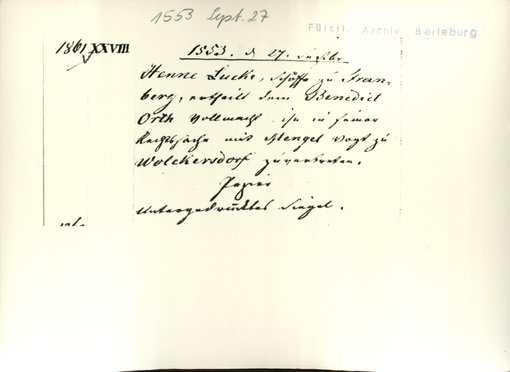 1553 Sept. 27
Fürstl. Archiv Berleburg
1861 XXVIII
1553. d 27. Septbr.
Henne Lucke, Schöffe zu Fran-
berg, ertheilt dem Benedict
Orth Vollmacht, ihn in seiner
Rechtssache mit Mengel Vogt zu
Wolckersdorf zu vertreten.
Papier
Untergedrucktes Siegel.